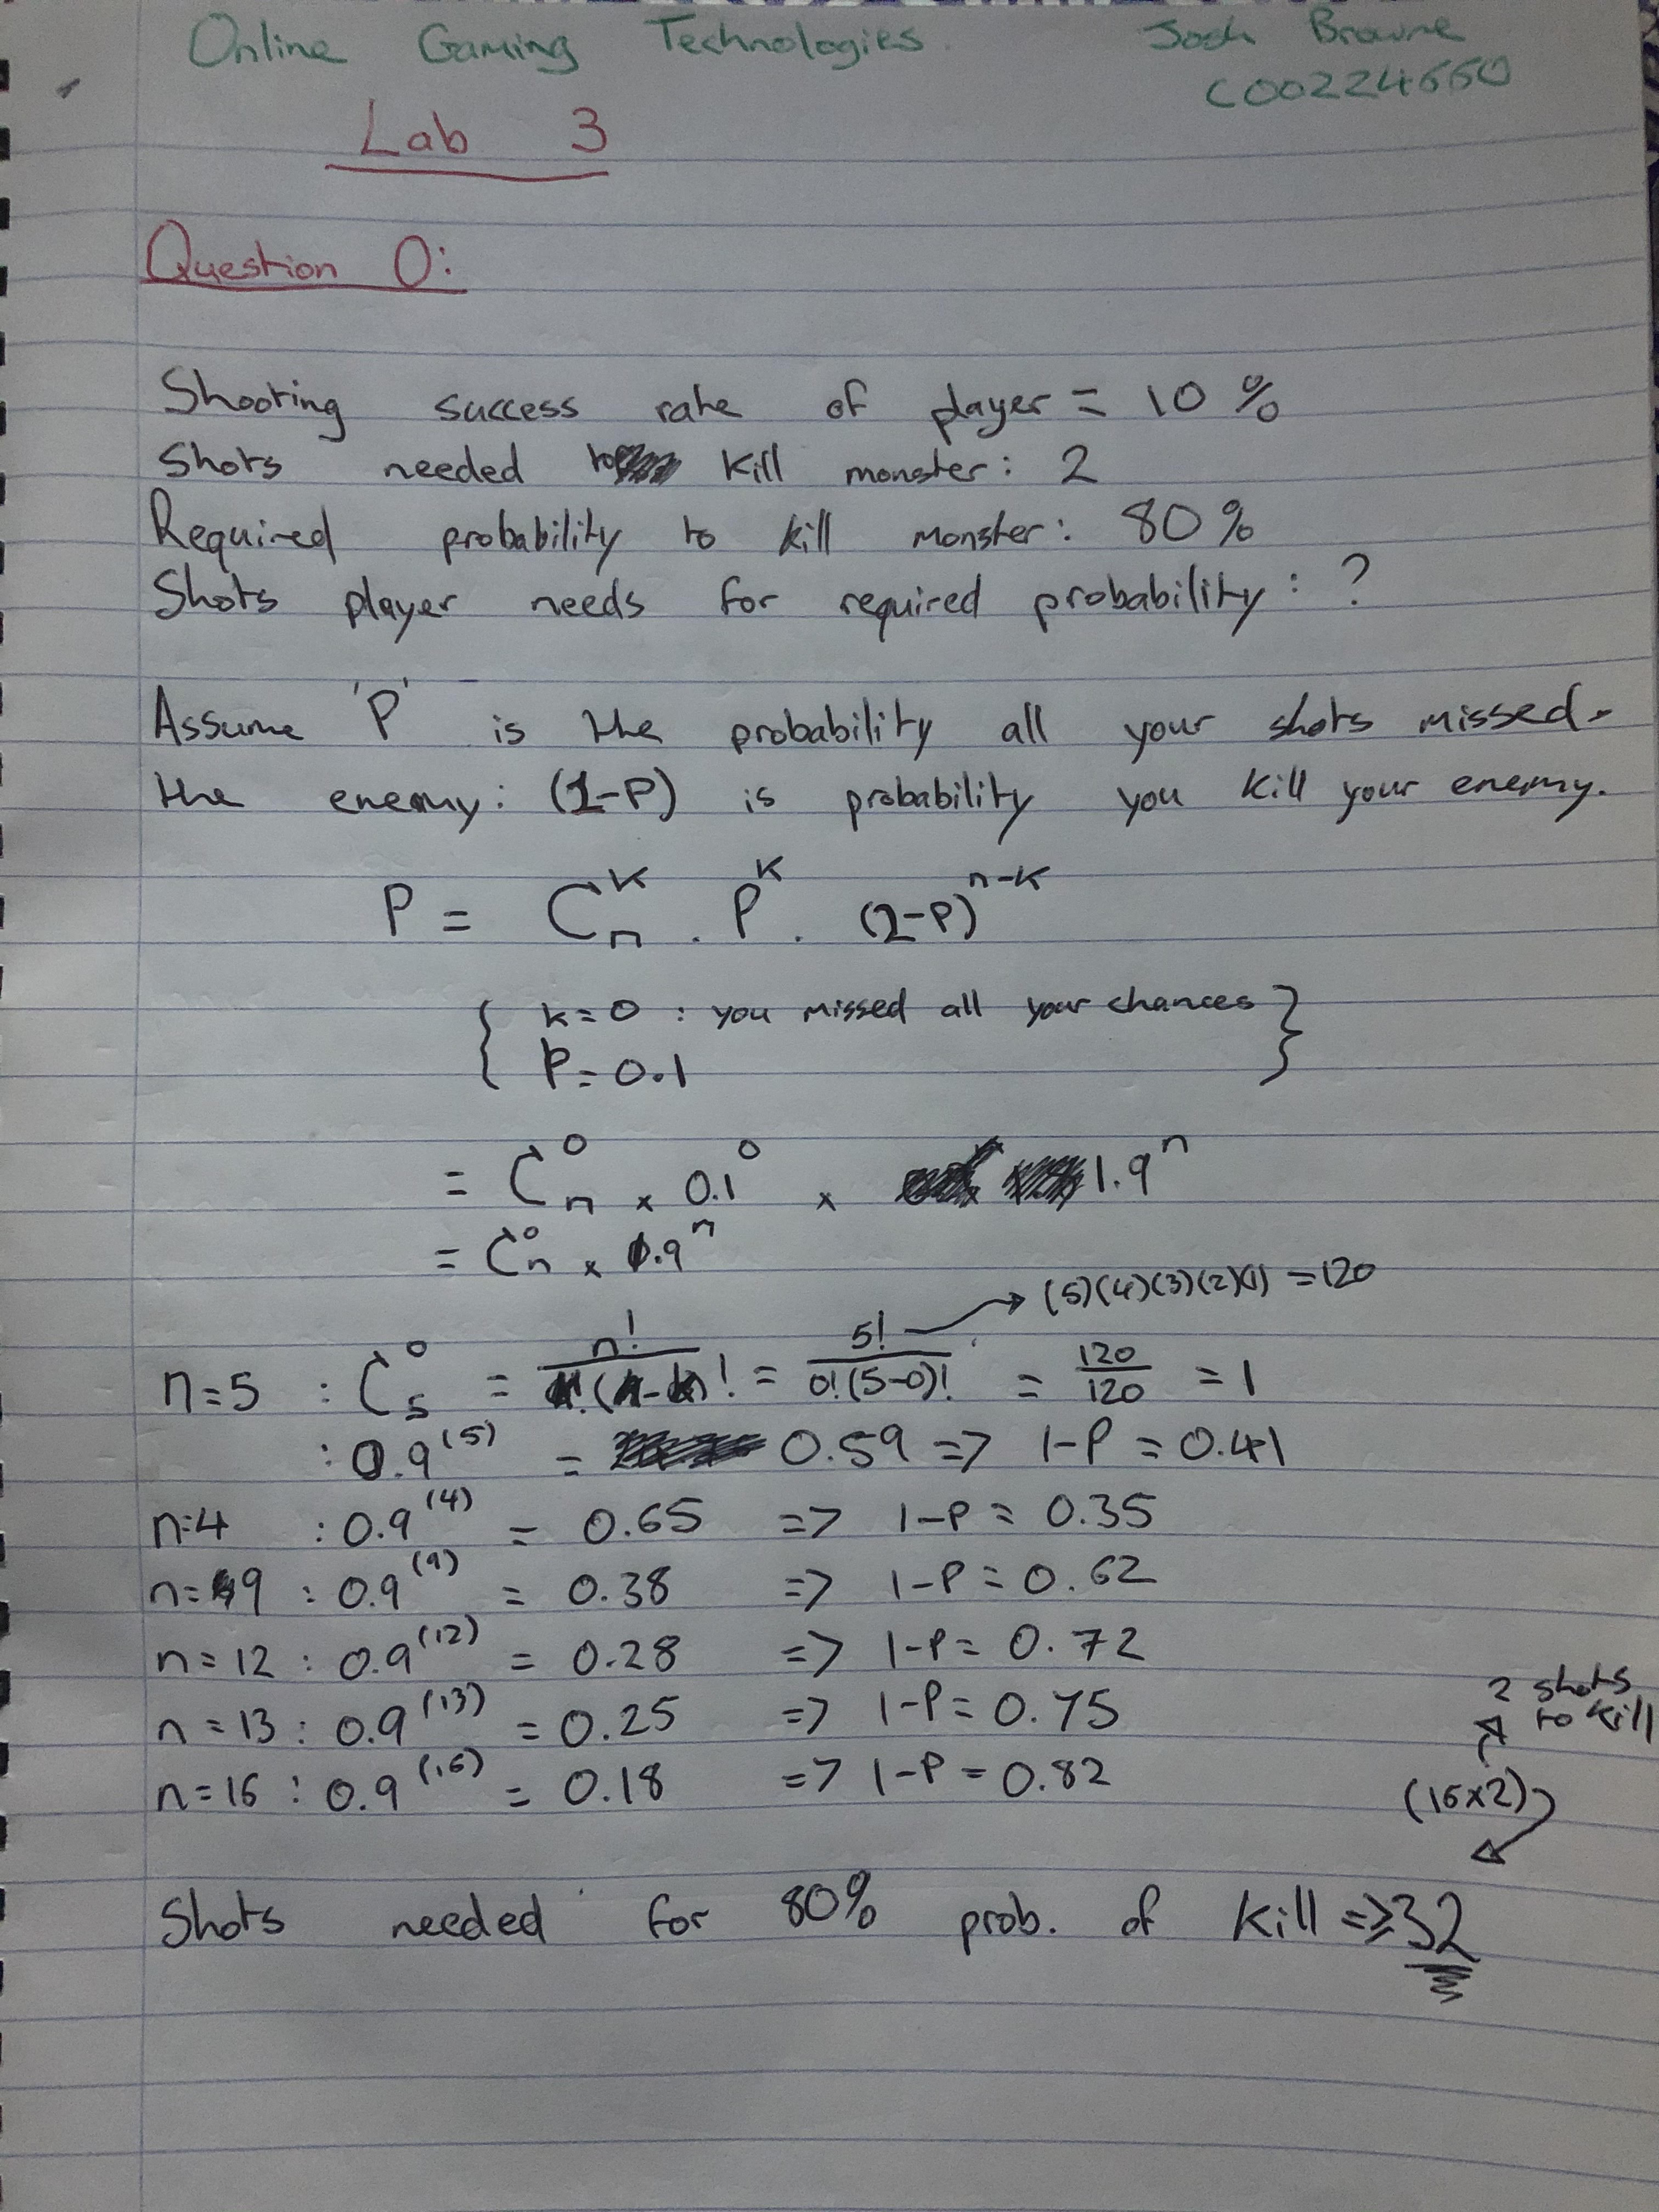 Online Gaming Technologies. Josh Browne
C00224660
Lab 3
Question 0:
Shooting success rate of player = 10%
Shots needed to kill monster: 2
Required probability to kill monster: 80%
Shots player needs for required probability: ?
Assume 'P' is the probability all your shots missed.
the enemy: (1-P) is probability you kill your enemy.
P = C_n^k . P^k . (1-P)^(n-k)
{ k=0 : you missed all your chances }
P=0.1
= C_n^0 × 0.1^0 × 1.9^n
= C_n^0 × 0.9^n
→ (5)(4)(3)(2)(1) = 120
n=5 : C_5^0 = n! / ... ! = 5! / 0!(5-0)! = 120/120 = 1
: 0.9^(5) = 0.59 => 1-P = 0.41
n=4 : 0.9^(4) = 0.65 => 1-P = 0.35
n=9 : 0.9^(9) = 0.38 => 1-P = 0.62
n=12 : 0.9^(12) = 0.28 => 1-P = 0.72
n=13 : 0.9^(13) = 0.25 => 1-P = 0.75
n=16 : 0.9^(16) = 0.18 => 1-P = 0.82
2 shots
to kill
(16×2)
Shots needed for 80% prob. of kill => 32